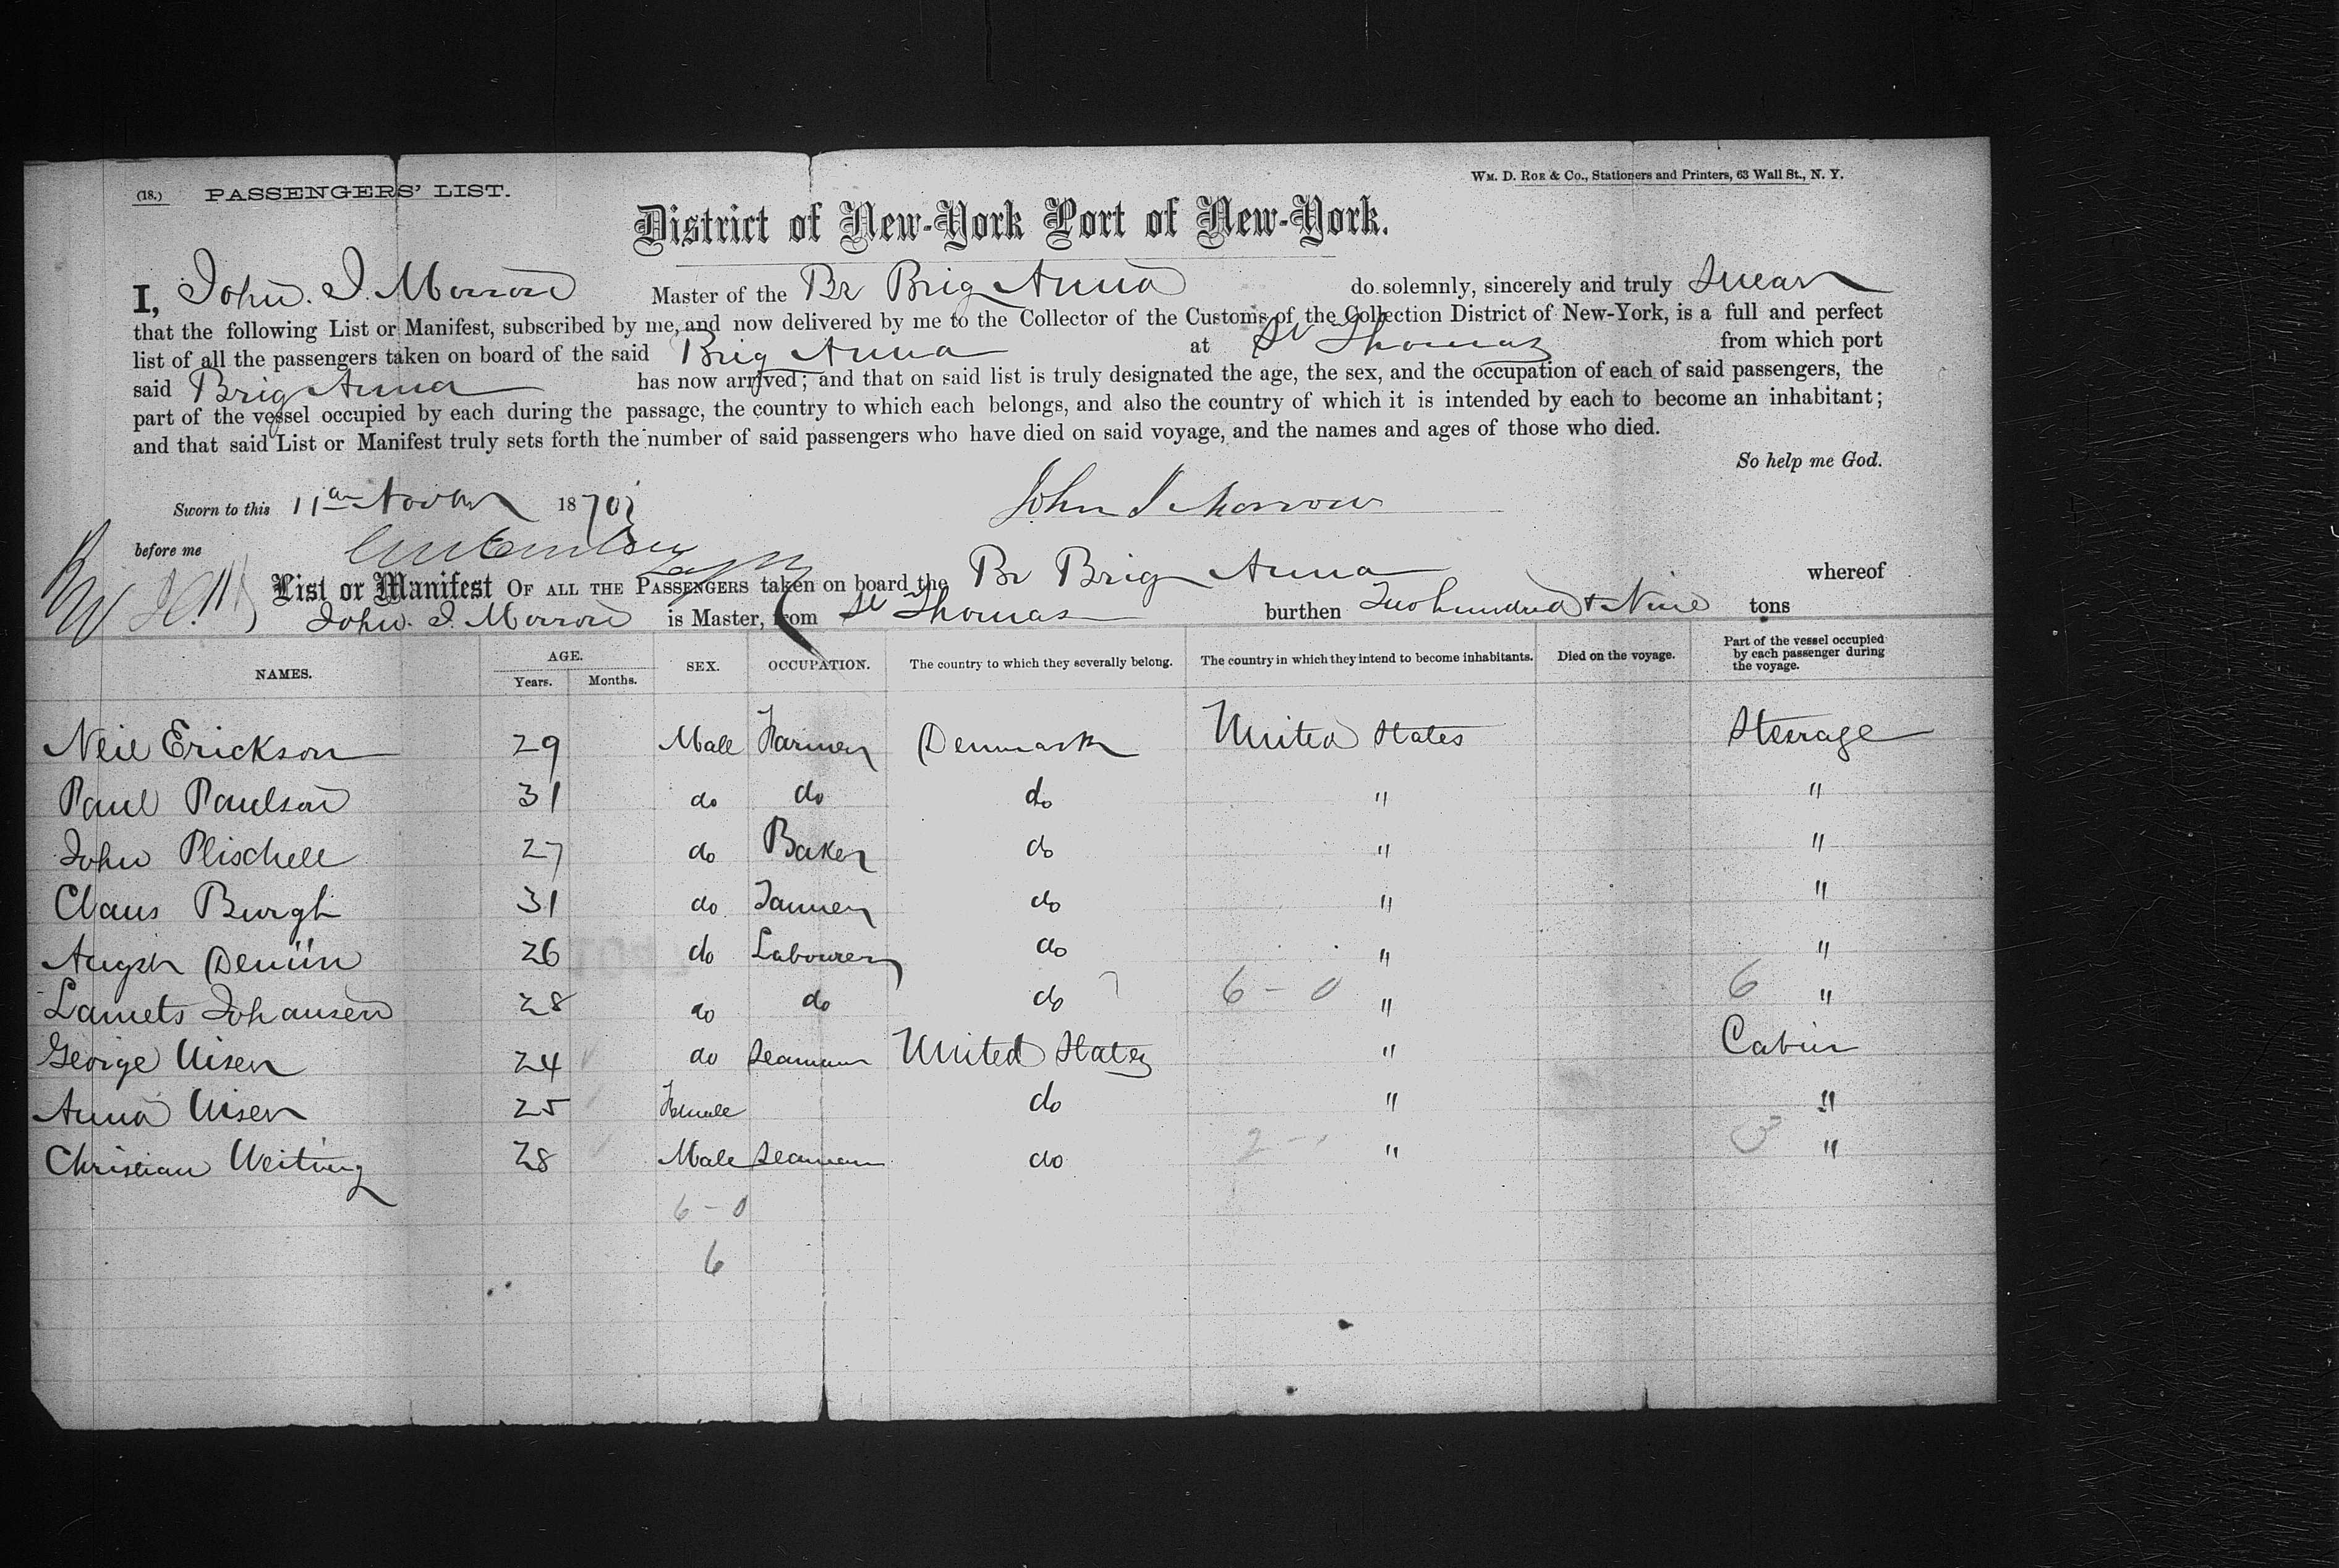 (18.) PASSENGERS' LIST.
WM. D. ROE & Co., Stationers and Printers, 63 Wall St., N. Y.
District of New-York Port of New-York.
I, John. I. Morrow Master of the Br Brig Anna do solemnly, sincerely and truly Swear
that the following List or Manifest, subscribed by me, and now delivered by me to the Collector of the Customs of the Collection District of New-York, is a full and perfect
list of all the passengers taken on board of the said Brig Anna at St Thomas from which port
said Brig Anna has now arrived; and that on said list is truly designated the age, the sex, and the occupation of each of said passengers, the
part of the vessel occupied by each during the passage, the country to which each belongs, and also the country of which it is intended by each to become an inhabitant;
and that said List or Manifest truly sets forth the number of said passengers who have died on said voyage, and the names and ages of those who died.
So help me God.
Sworn to this 11 1870 John I Morrow
before me
List or Manifest OF ALL THE PASSENGERS taken on board the Br Brig Anna whereof
John. I. Morrow is Master, from St Thomas burthen Two hundred + Nine tons
NAMES. AGE. Years. Months. SEX. OCCUPATION. The country to which they severally belong. The country in which they intend to become inhabitants. Died on the voyage. Part of the vessel occupied by each passenger during the voyage.
Neil Erickson 29 Male Farmer Denmark United States Steerage
Paul Paulson 31 do do do " "
John Plischell 27 do Baker do " "
Claus Burgh 31 do Tanner do " "
26 do Labourer do " "
Johansen 28 do do do 6 - 0 " 6 "
George 24 do Seaman United States " Cabin
Anna 25 Female do " "
Christian 28 Male Seaman do 2 - " 3 "
6 - 0
6